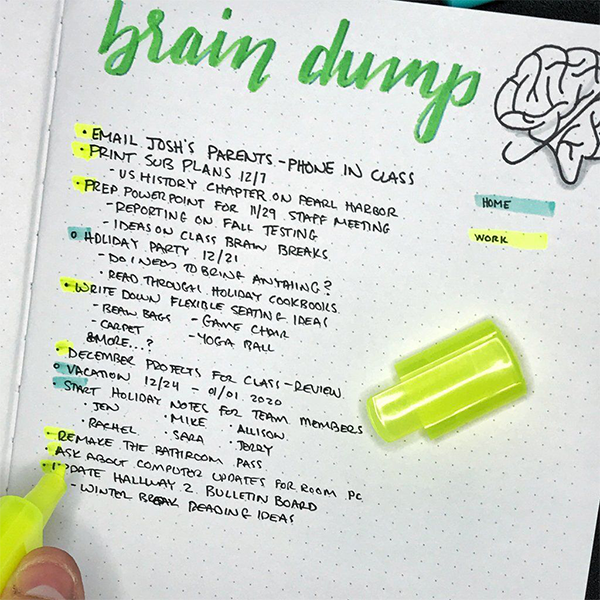 brain dump
• EMAIL JOSH'S PARENTS - PHONE IN CLASS
• PRINT SUB PLANS 12/7
- US HISTORY CHAPTER ON PEARL HARBOR
• PREP POWERPOINT FOR 11/29 STAFF MEETING
- REPORTING ON FALL TESTING
- IDEAS ON CLASS BRAIN BREAKS
o HOLIDAY PARTY 12/21
- DO I NEED TO BRING ANYTHING?
• READ THROUGH HOLIDAY COOKBOOKS
• WRITE DOWN FLEXIBLE SEATING IDEAS
- BEAN BAGS - GAME CHAIR
- CARPET - YOGA BALL
& MORE...?
• DECEMBER PROJECTS FOR CLASS - REVIEW
o VACATION 12/24 - 01/01 2020
• START HOLIDAY NOTES FOR TEAM MEMBERS
• JEN • MIKE • ALLISON
• RACHEL • SARA • JERRY
• REMAKE THE BATHROOM PASS
• ASK ABOUT COMPUTER UPDATES FOR ROOM PC
• UPDATE HALLWAY 2 BULLETIN BOARD
- WINTER BREAK READING IDEAS
HOME
WORK